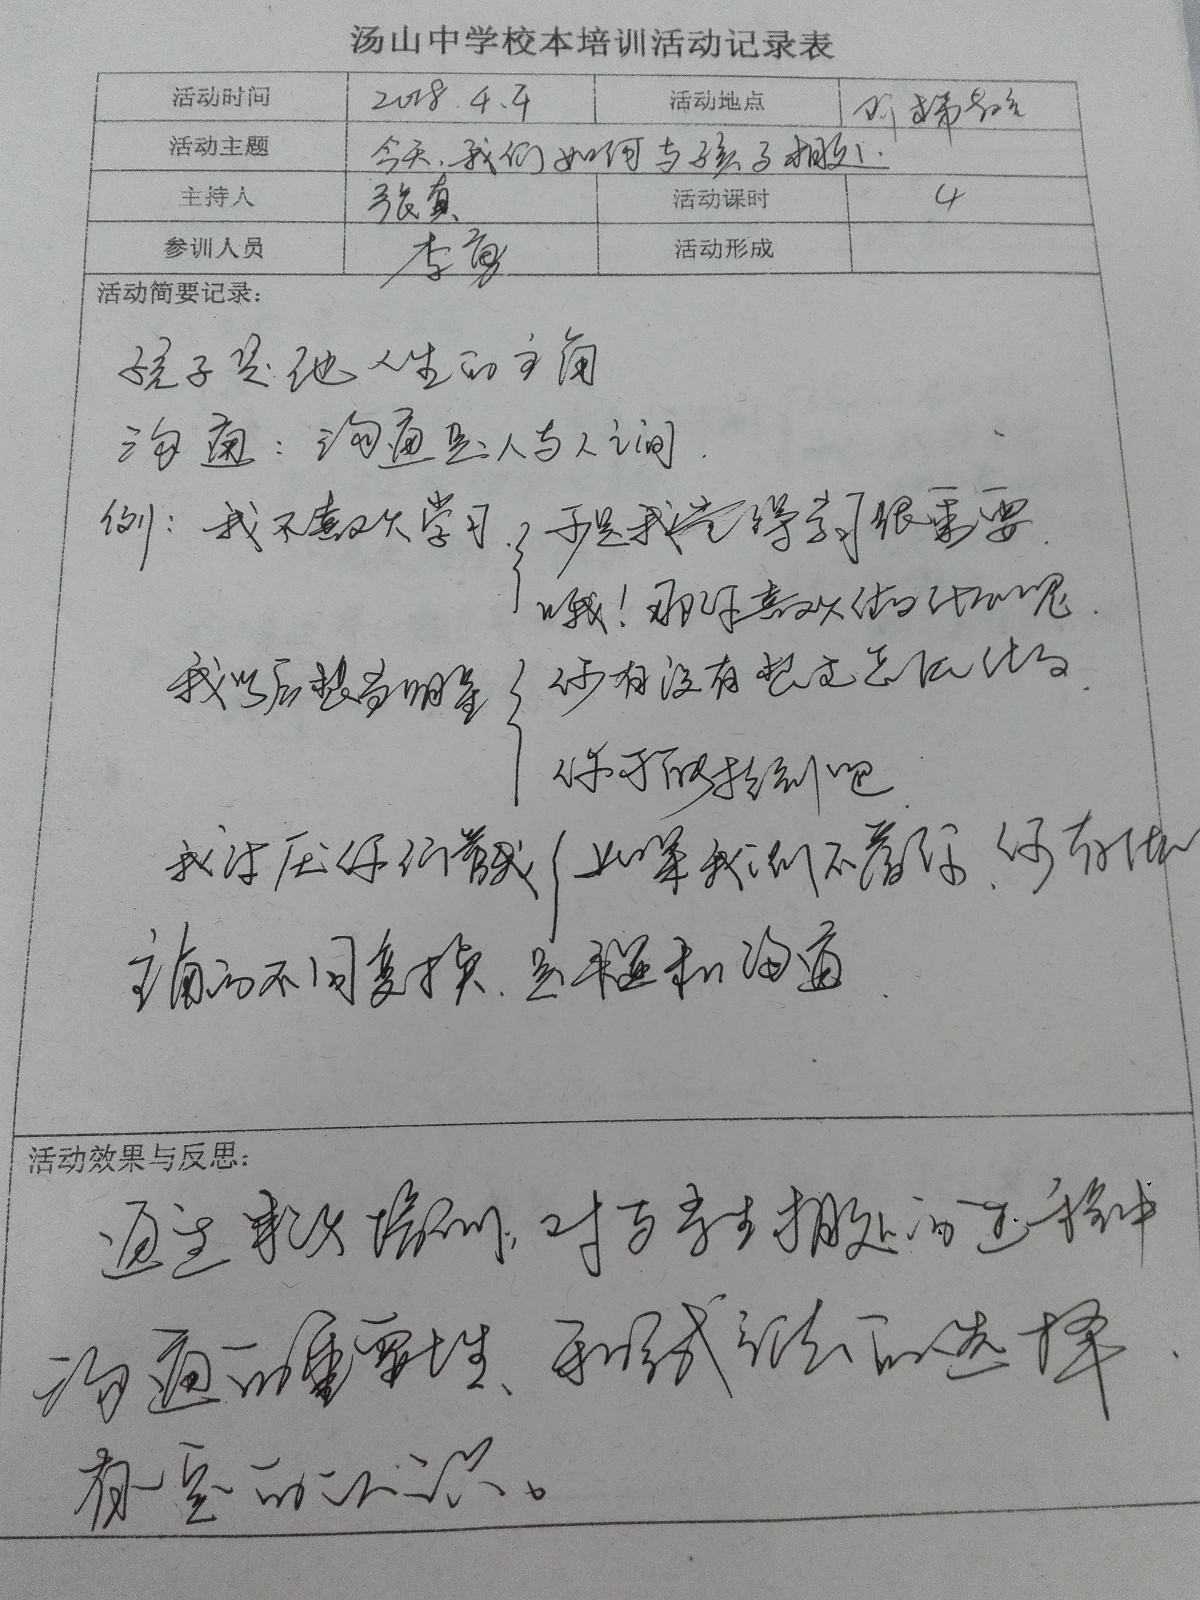 汤山中学校本培训活动记录表
活动时间 2018.4.4 活动地点 阶梯教室
活动主题 今天,我们如何与孩子相处.
主持人 张真 活动课时 4
参训人员 李勇 活动形成
活动简要记录:
孩子是他人生的主角
沟通:沟通是人与人之间.
例:我不喜欢学习. 于是我觉得学习很重要.
哦!那你喜欢做什么呢.
我以后想当明星 你有没有想过怎么做.
你 吧
我讨厌你们管我 如果我们不管你,你有什么
主角的不同变换.是 和沟通.
活动效果与反思:
通过本次培训,对与学生相处的过程中
沟通的重要性、和 方法的选择.
有一定的认识。